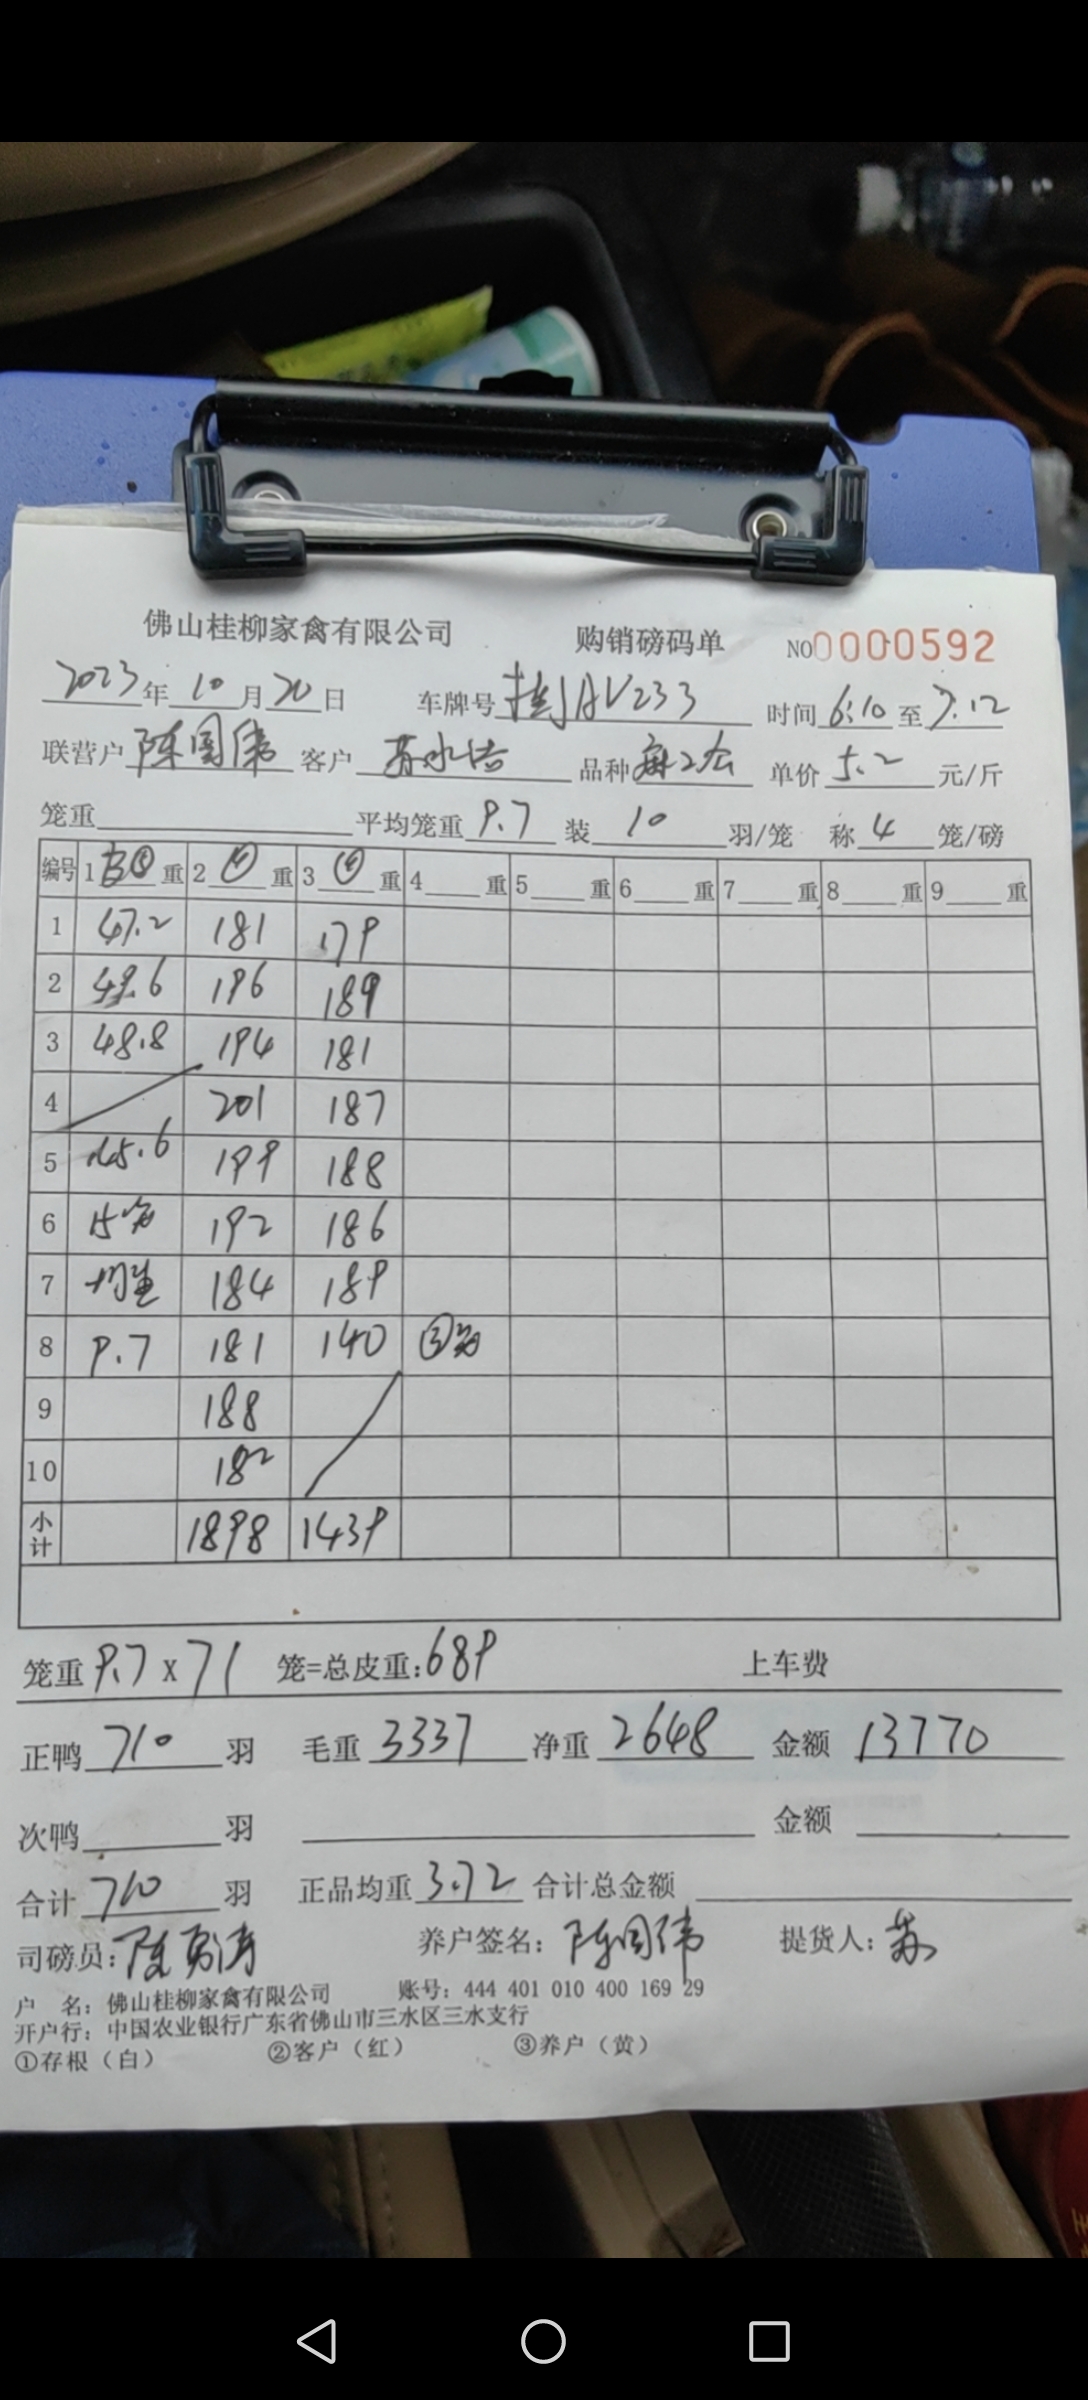 佛山桂柳家禽有限公司 购销磅码单 NO0000592
2023年10月20日 车牌号 AV233 时间6:10至7.12
联营户陈国伟 客户 品种 单价5.2元/斤
笼重 平均笼重9.7 装10羽/笼 称4笼/磅
编号 1 ⑤ 重 2 ④ 重 3 ④ 重 4 重 5 重 6 重 7 重 8 重 9 重
1 47.2 181 179
2 49.6 196 189
3 48.8 194 181
4 201 187
5 145.6 199 188
6 15笼 192 186
7 均重 184 189
8 9.7 181 140 ③笼
9 188
10 182
小计 1898 1439
笼重9.7x71 笼=总皮重:689 上车费
正鸭710羽 毛重3337 净重2648 金额13770
次鸭 羽 金额
合计710羽 正品均重3.72 合计总金额
司磅员: 养户签名: 陈国伟 提货人: 苏
户 名: 佛山桂柳家禽有限公司 账号: 444 401 010 400 169 29
开户行: 中国农业银行广东省佛山市三水区三水支行
①存根（白） ②客户（红） ③养户（黄）